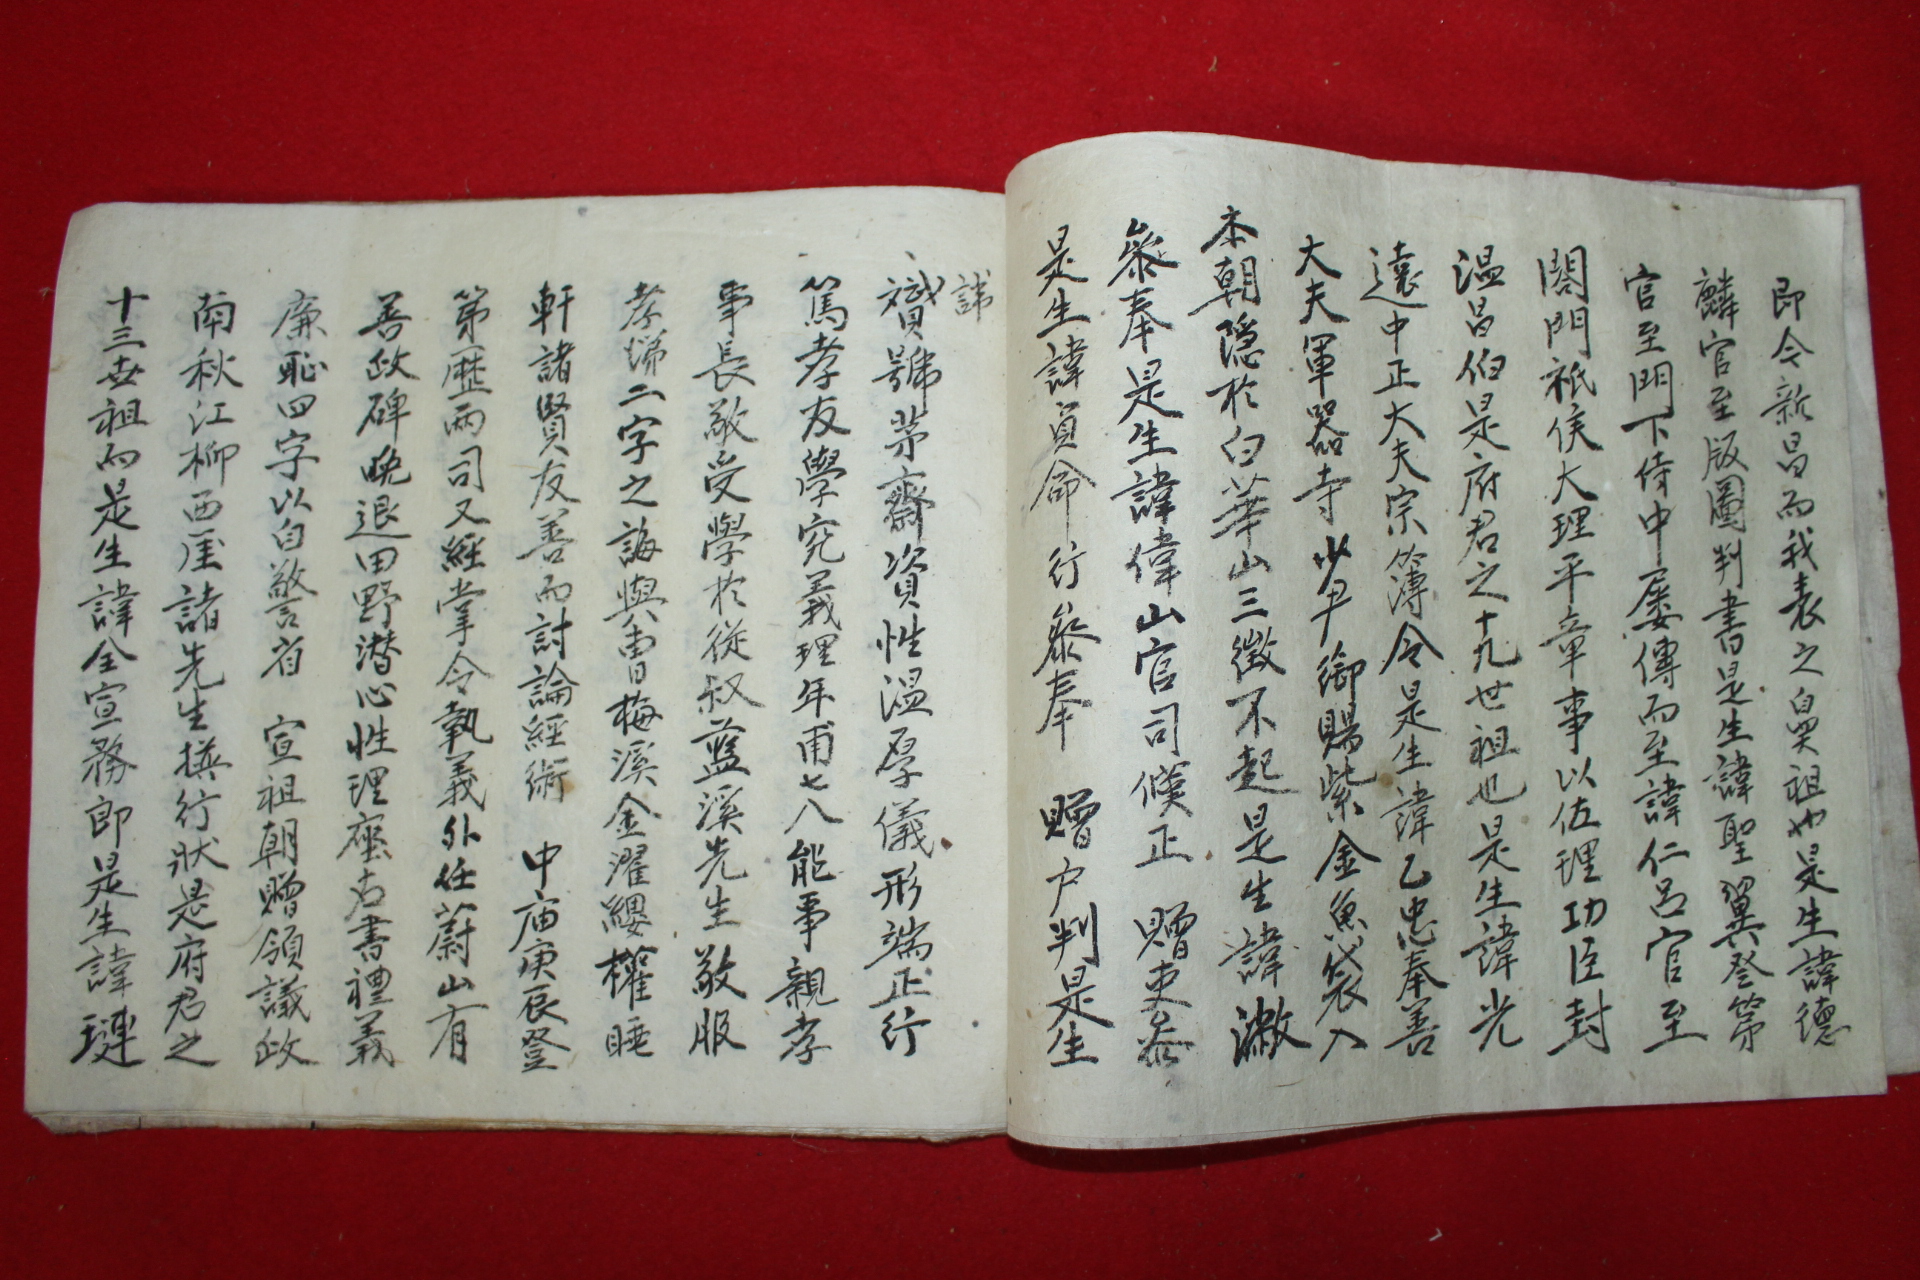 即今新昌而我表之鼻祖也是生諱德
麟官至版圖判書是生諱聖翼登第
官至門下侍中屡傳而至諱仁呂官至
閤門祇侯大理平章事以佐理功臣封
温昌伯是府君之十九世祖也是生諱光
遠中正大夫宗簿令是生諱乙忠奉善
大夫軍器寺少尹御賜紫金魚袋入
本朝隠於白華山三徵不起是生諱澈
叅奉是生諱偉山官司僕正 贈吏叅
是生諱貟命行叅奉 贈户判是生
諱
贇號茅齋資性温厚儀形端正行
篤孝友學究義理年甫七八能事親孝
事長敬受學於從叔藍溪先生敬服
孝悌二字之誨與曺梅溪金濯纓權睡
軒諸賢友善而討論經術 中庙庚辰登
第歴兩司又經掌令執義外任蔚山有
善政碑晩退田野潜心性理座右書禮義
廉恥四字以自警省 宣祖朝贈領議政
南秋江柳西厓諸先生撰行狀是府君之
十三世祖而是生諱全宣務郎是生諱璉